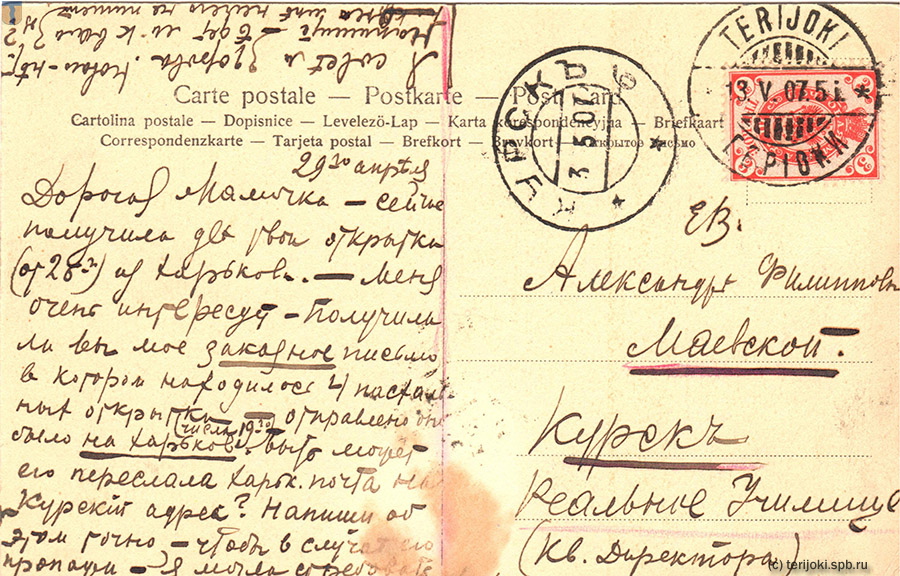 Я совсем здорова.
Напиши — Будет ли к вам
Carte postale — Postkarte — Post card
Cartolina postale — Dopisnice — Levelező-Lap — Karta korespondencyjna — Briefkaart
Correspondenzkarte — Tarjeta postal — Brefkort — Brevkort — Открытое письмо
TERIJOKI
13 V 07 5 i.
ТЕРІОКИ
КУРСКЪ
3 5 07
6
29го апрѣля
Дорогая Мамочка — сейчас
получила две твои открытки
(от 28го) из Харькова. — Меня
очень интересует — Получила
ли вы мое заказное письмо
в котором находилось 4
открытки — отправлено
(числа 19го)
было на Харьков? быть может
его переслала Харьк. почта на
Курскій адрес? Напиши об
этом точно, — чтобы в случае его
пропажи — я могла
ЕВ.
Александре Филипповне
Маевской.
Курскъ
Реальное Училище
(Кв. Директора)
(c) terijoki.spb.ru